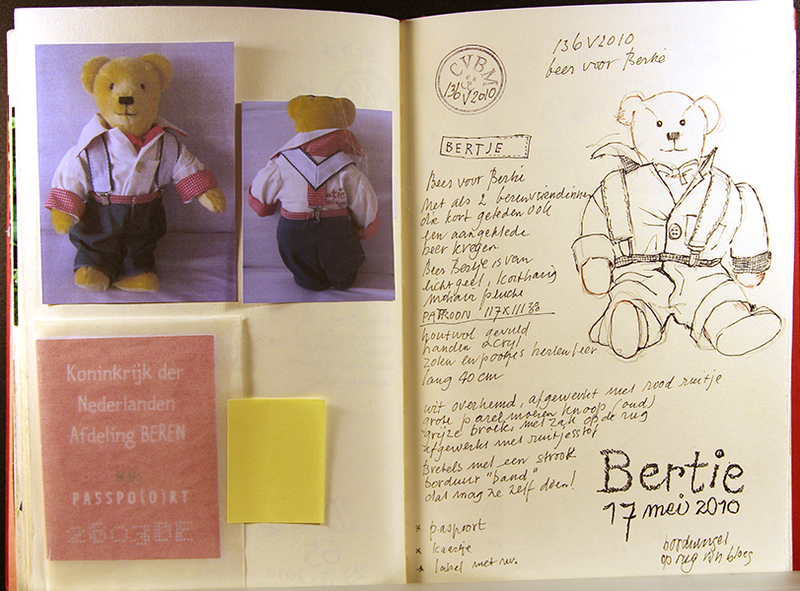 Bertie
Koninkrijk der
Nederlanden
Afdeling BEREN
PASSPO(O)RT
2803BE
CVBM
136V2010
136V2010
beer voor Bertie
BERTJE
Beer voor Bertie
Net als 2 berenvriendinnen
die kort geleden ook
een aangeklede
beer kregen
Beer Bertje is van
lichtgeel, kortharig
mohair pluche
PATROON 117X111
houtwol gevuld
handen acryl
zolen en pootjes
lang 40 cm
wit overhemd, afgewerkt met rood ruitje
grote parelmoeren knoop (oud)
grijze broek met zak op de rug
afgewerkt met ruitjesstof
Bretels met een strook
borduur "band"
dat mag ze zelf doen!
x paspoort
x kaartje
x label met nr.
Bertie
17 mei 2010
borduursel
op rug v/n bloes